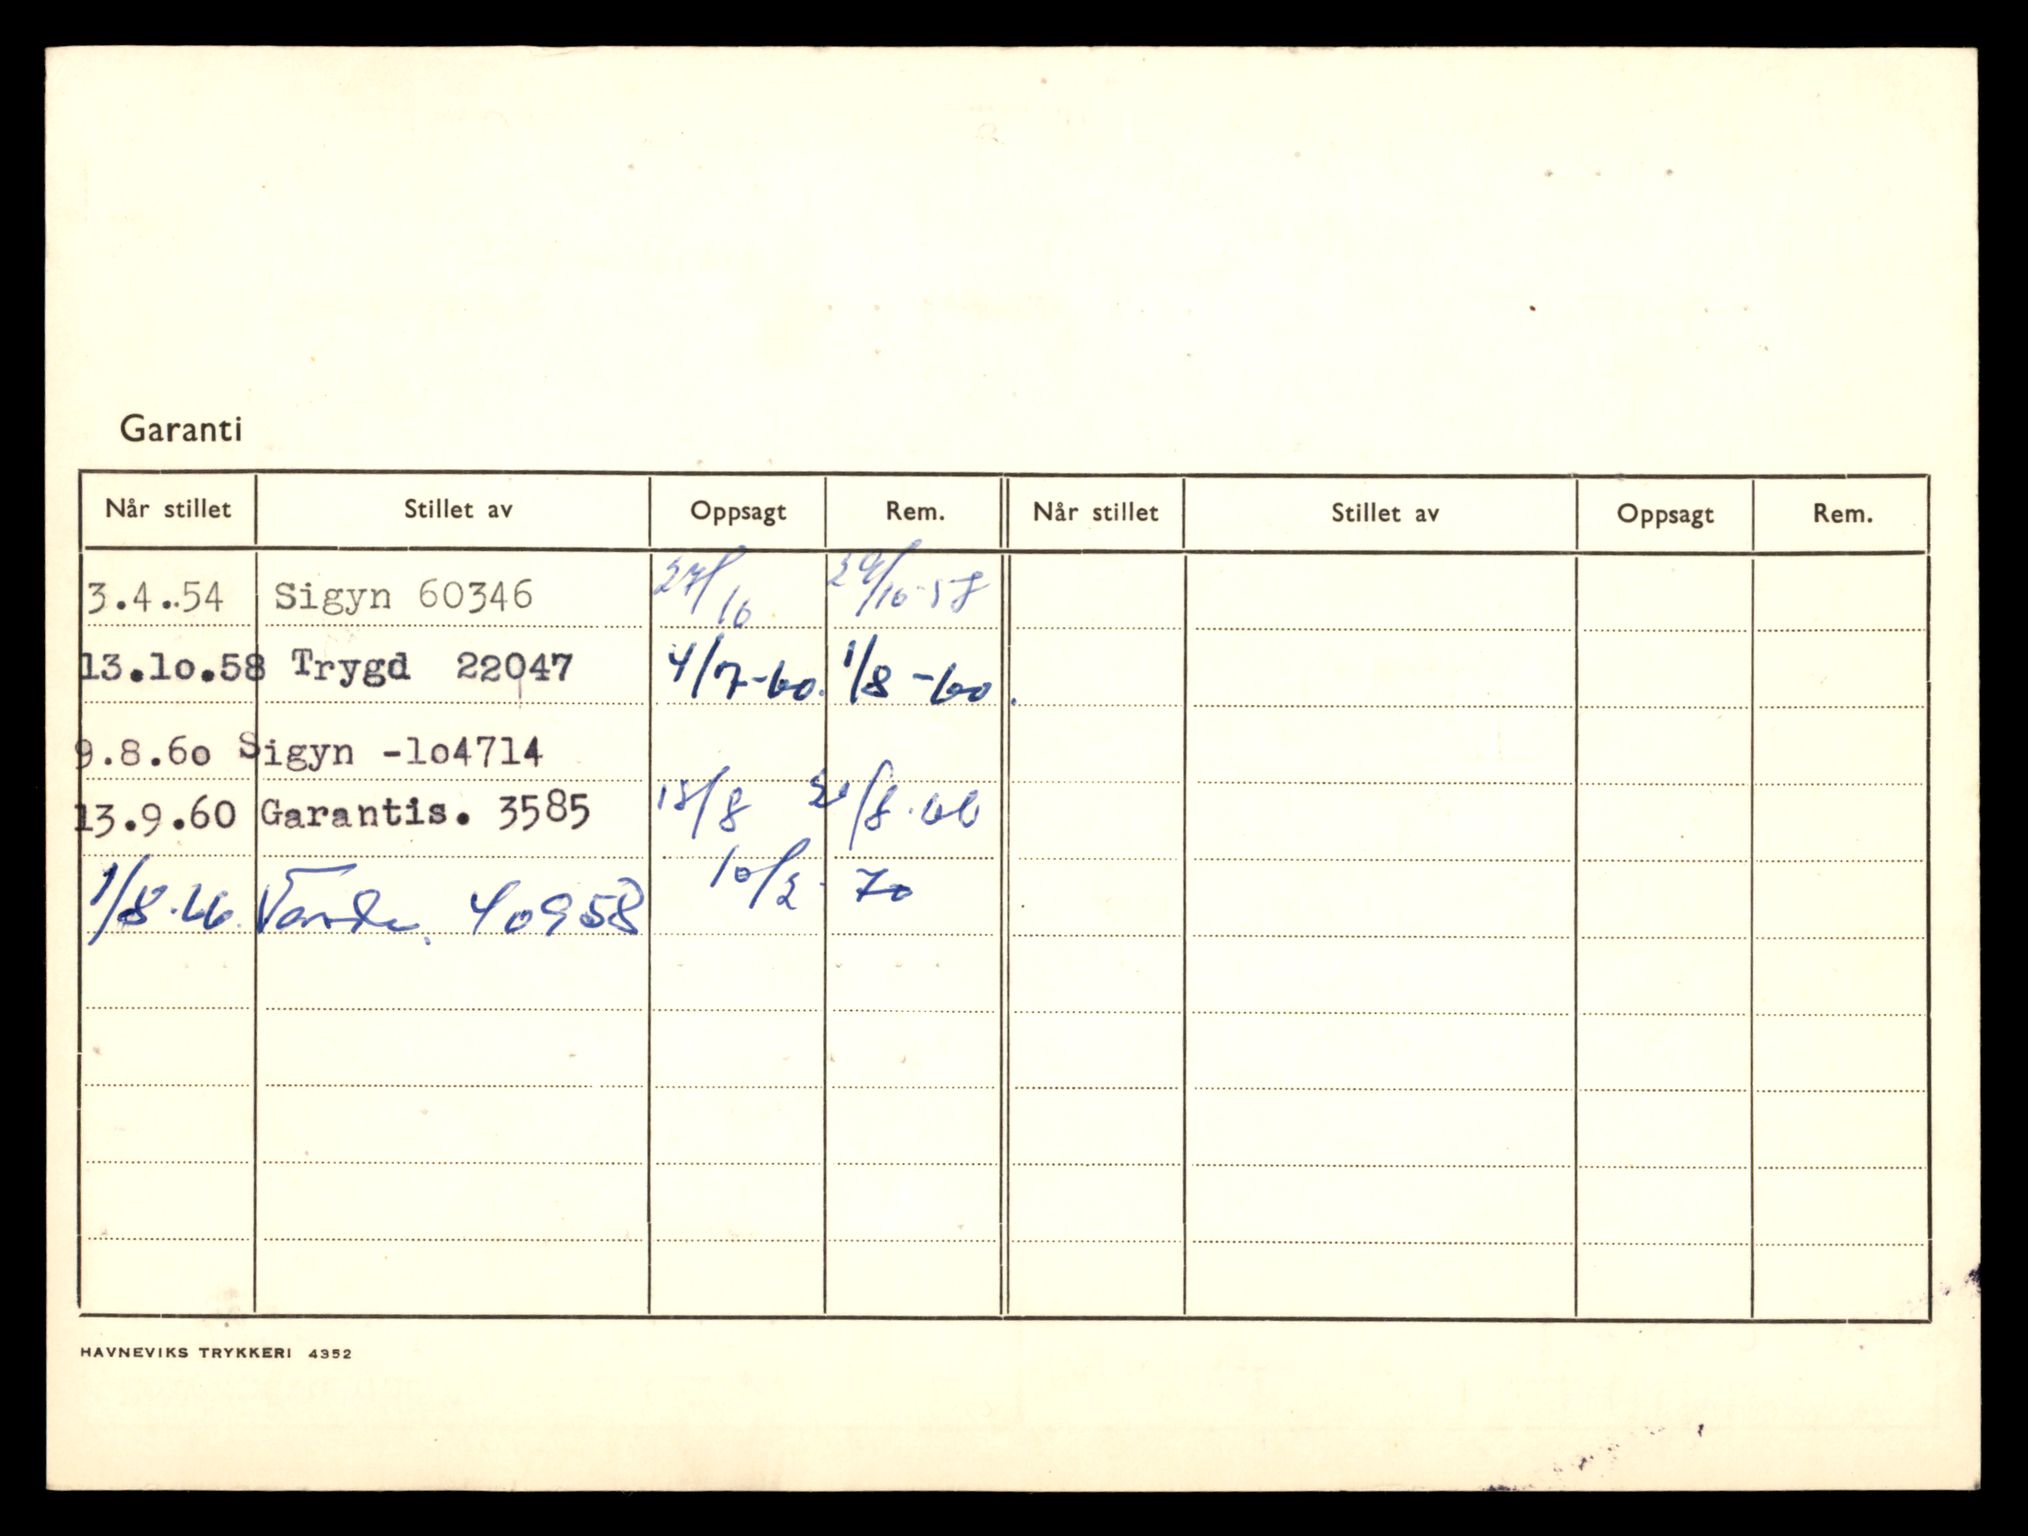 Garanti
Når stillet Stillet av Oppsagt Rem. Når stillet Stillet av Oppsagt Rem.
3.4..54 Sigyn 60346 27/10 29/10-58
13.lo.58 Trygd 22047 4/7-60. 1/8-60.
9.8.6o Sigyn -lo4714
13.9.60 Garantis. 3585 15/8 /8.66
1/8.66. Varde. 40958 10/2- 70
HAVNEVIKS TRYKKERI 4352